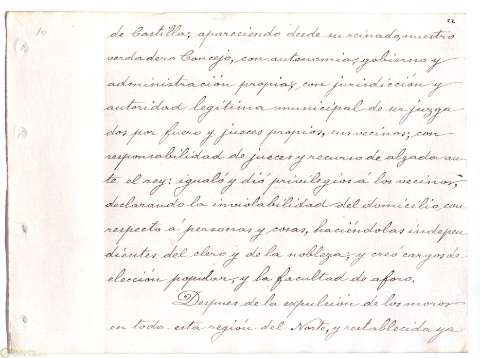 22
10
de Castilla; apareciendo desde su reinado, nuestro
verdadero Concejo, con autonomia, gobierno y
administración propia; con jurisdicción y
autoridad legítima municipal de ser juzga
dos por fuero y jueces propios, sus vecinos; con
responsabilidad de jueces y recurso de alzada an-
te el rey; igualó y dió privilegios á los vecinos,
declarando la inviolabilidad del domicilio, con
respecto á personas y cosas, haciéndolas indepen
dientes del clero y de la nobleza; y creó cargos de
elección popular, y la facultad de aforo.
Despues de la expulsión de los moros
en toda esta región del Norte, y restablecida ya